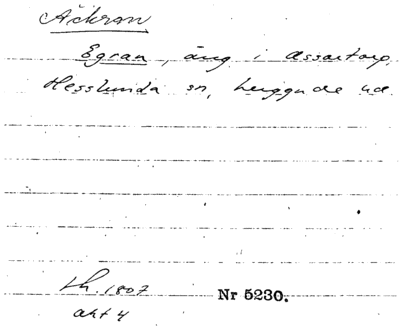 Äckran
Egran, äng i Assartorp,
Hesslunda sn, Luggude hd.
Lh. 1807
akt 4
Nr 5230.